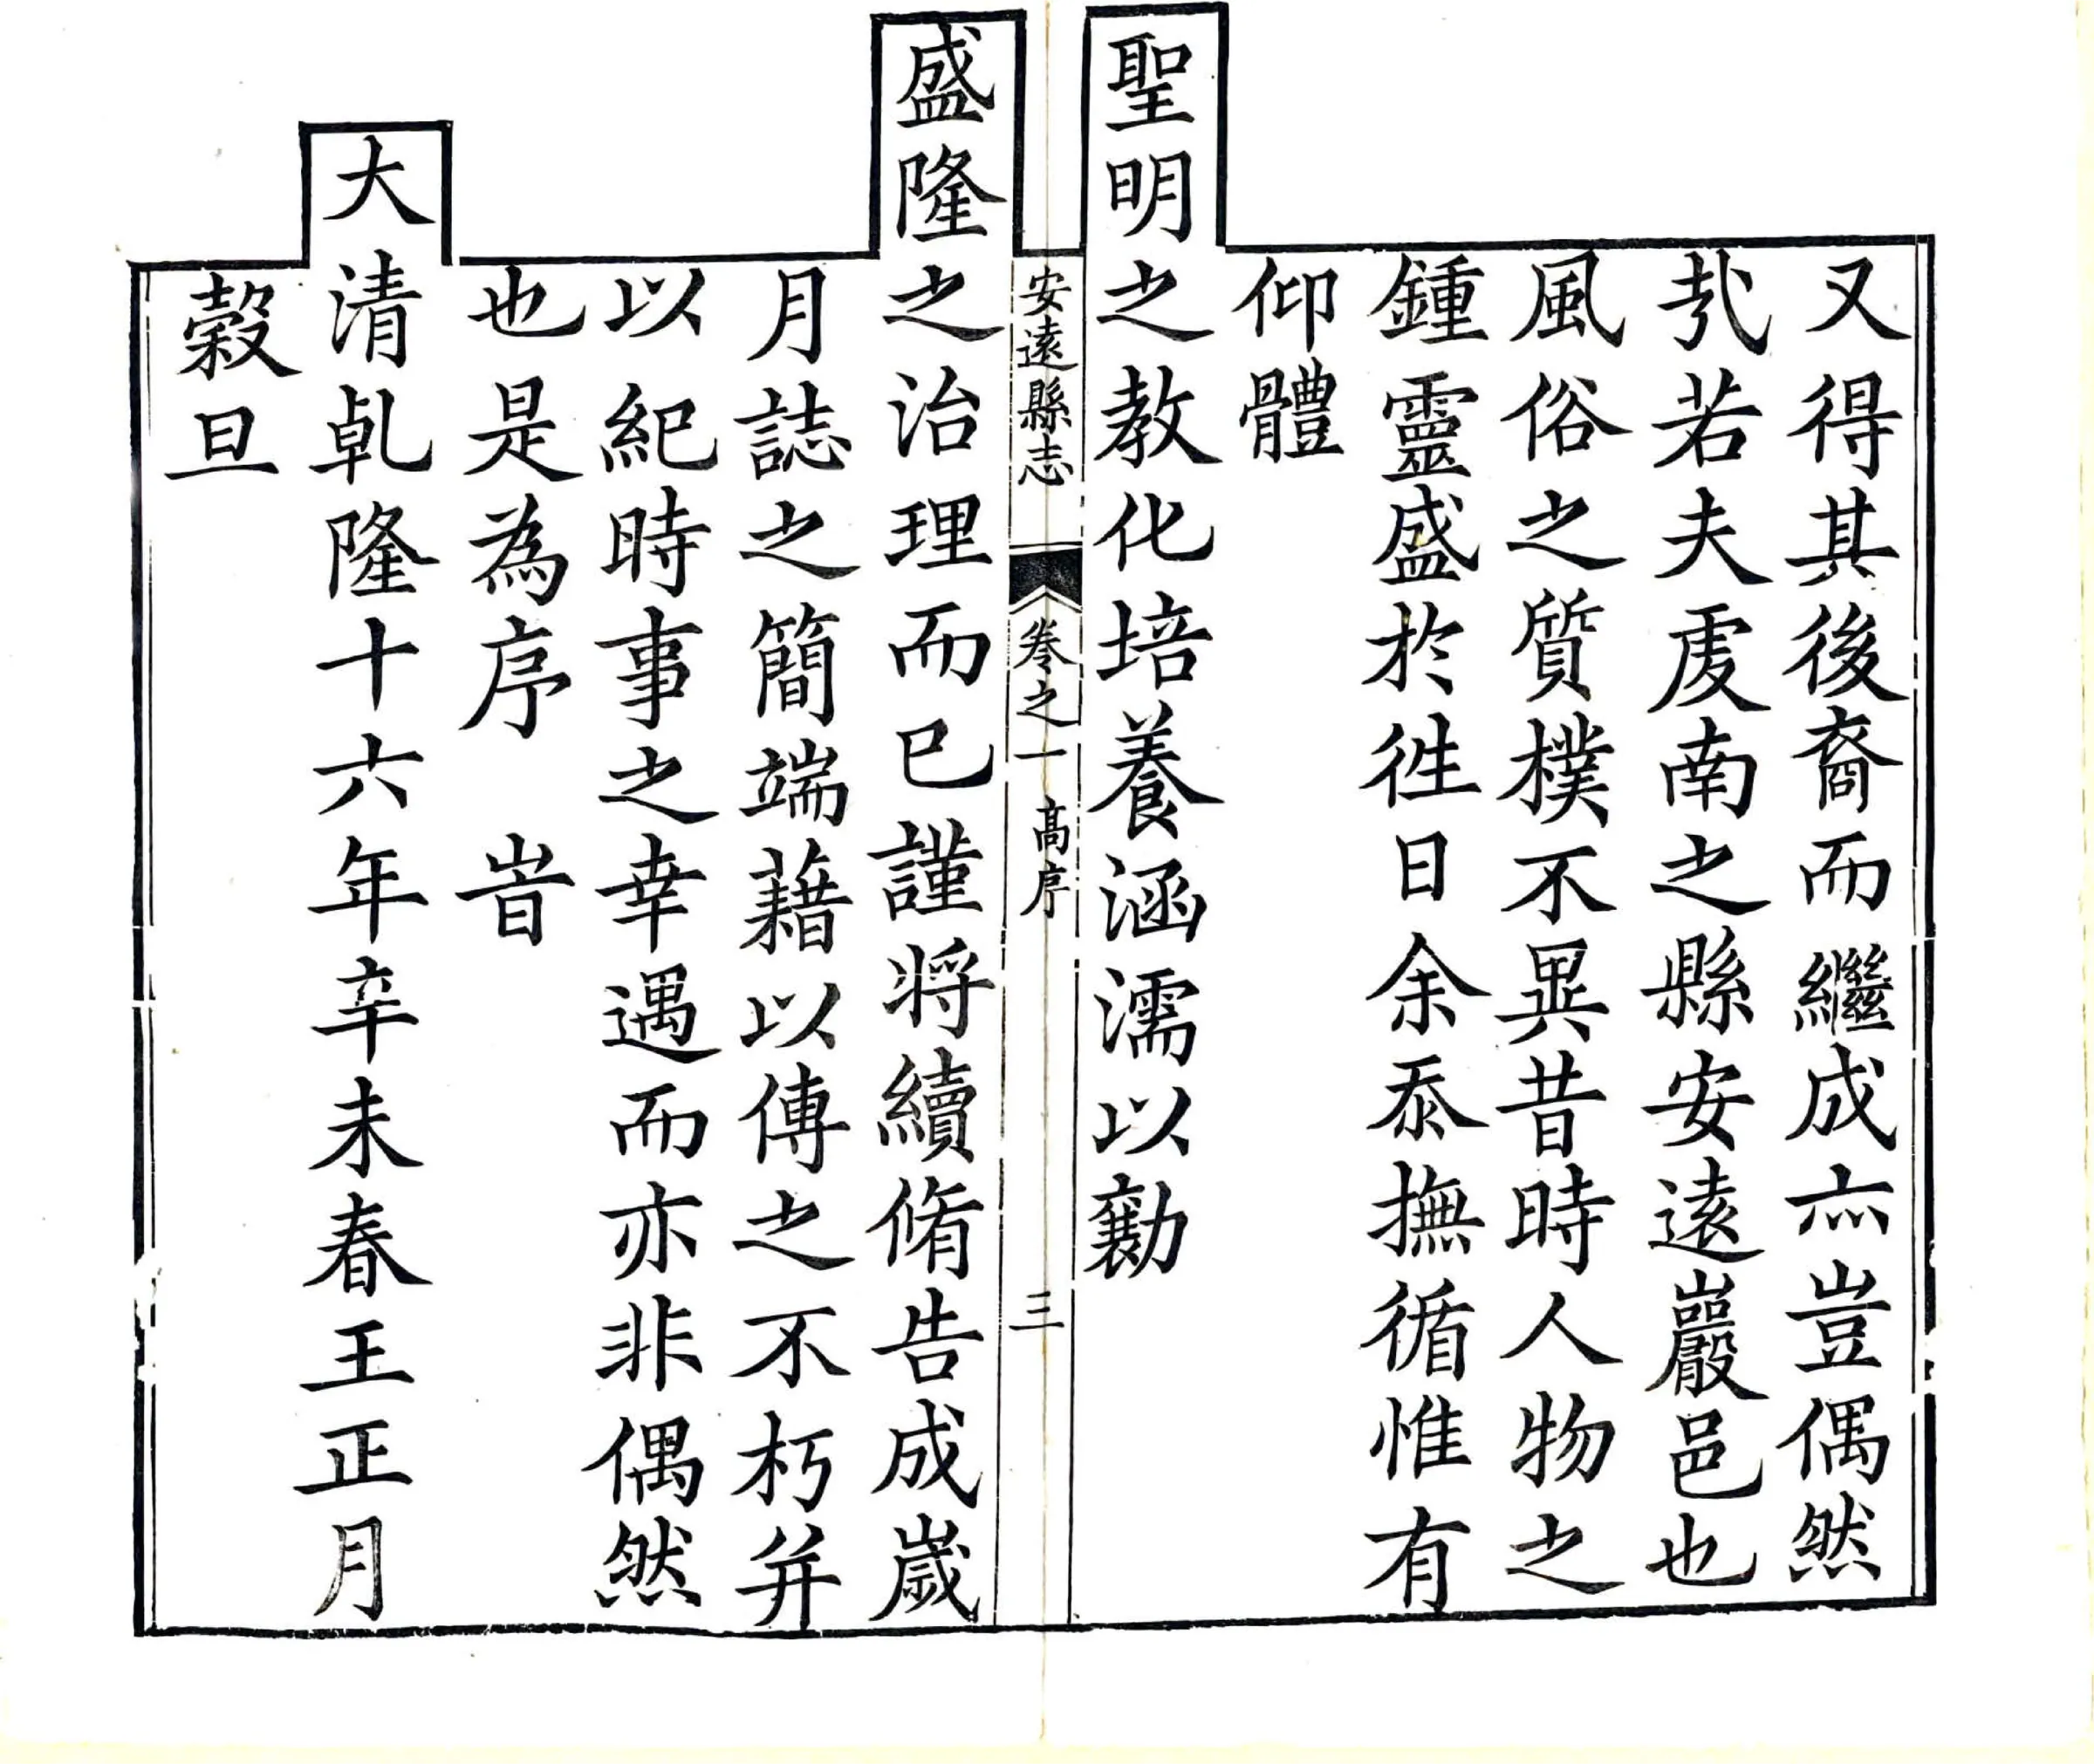 又得其後裔而繼成之豈偶然
哉若夫虔南之縣安遠巖邑也
風俗之質樸不異昔時人物之
鍾靈盛於徃日余忝撫循惟有
仰體
聖明之教化培養涵濡以勷
安遠縣志 卷之一 高序 三
盛隆之治理而已謹將續脩告成歲
月誌之簡端藉以傳之不朽并
以紀時事之幸遇而亦非偶然
也是為序 旹
大清乹隆十六年辛未春王正月
穀旦